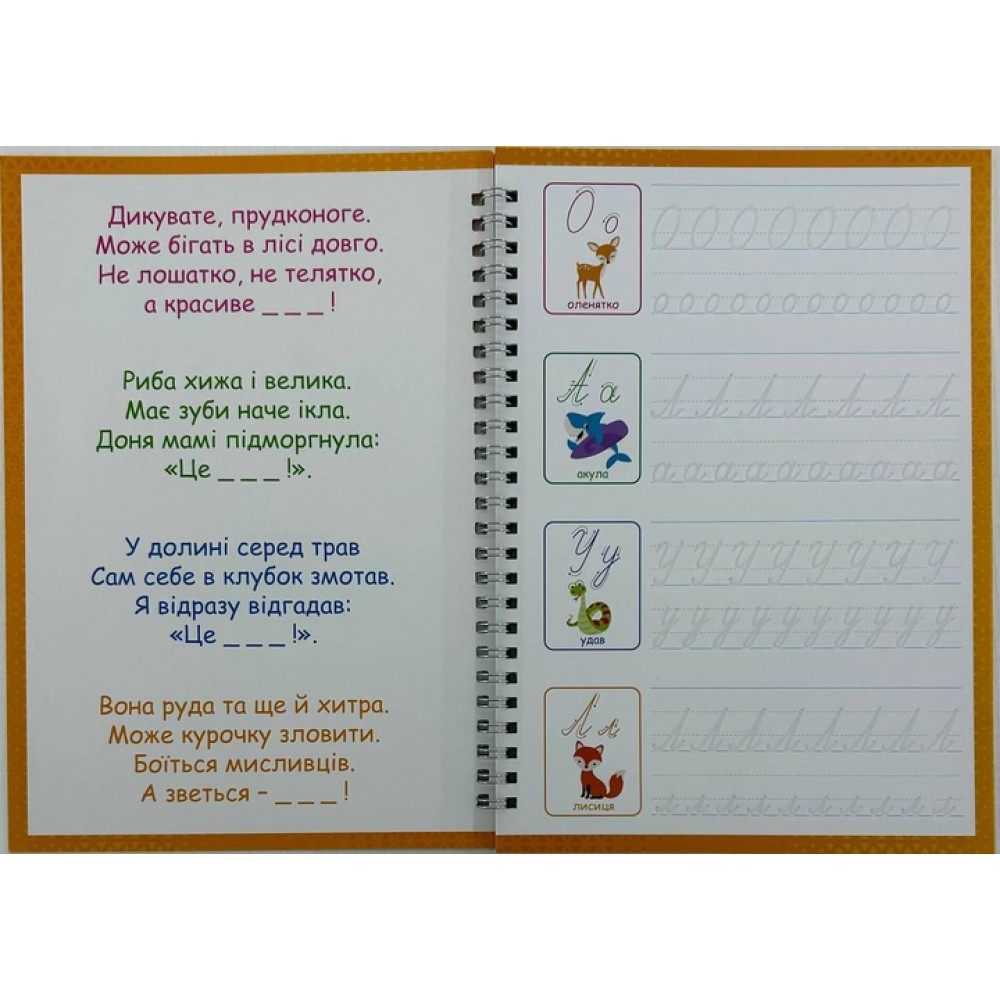 Дикувате, прудконоге.
Може бігать в лісі довго.
Не лошатко, не телятко,
а красиве _ _ _ !
Риба хижа і велика.
Має зуби наче ікла.
Доня мамі підморгнула:
«Це _ _ _ !».
У долині серед трав
Сам себе в клубок змотав.
Я відразу відгадав:
«Це _ _ _ !».
Вона руда та ще й хитра.
Може курочку зловити.
Боїться мисливців.
А зветься – _ _ _ !
О о
оленятко
О О О О О О О О
о о о о о о о о о о о о
А а
акула
А А А А А А А А
а а а а а а а а а а
У у
удав
У У У У У У У У
у у у у у у у у у
Л л
лисиця
Л Л Л Л Л Л Л Л
л л л л л л л л л